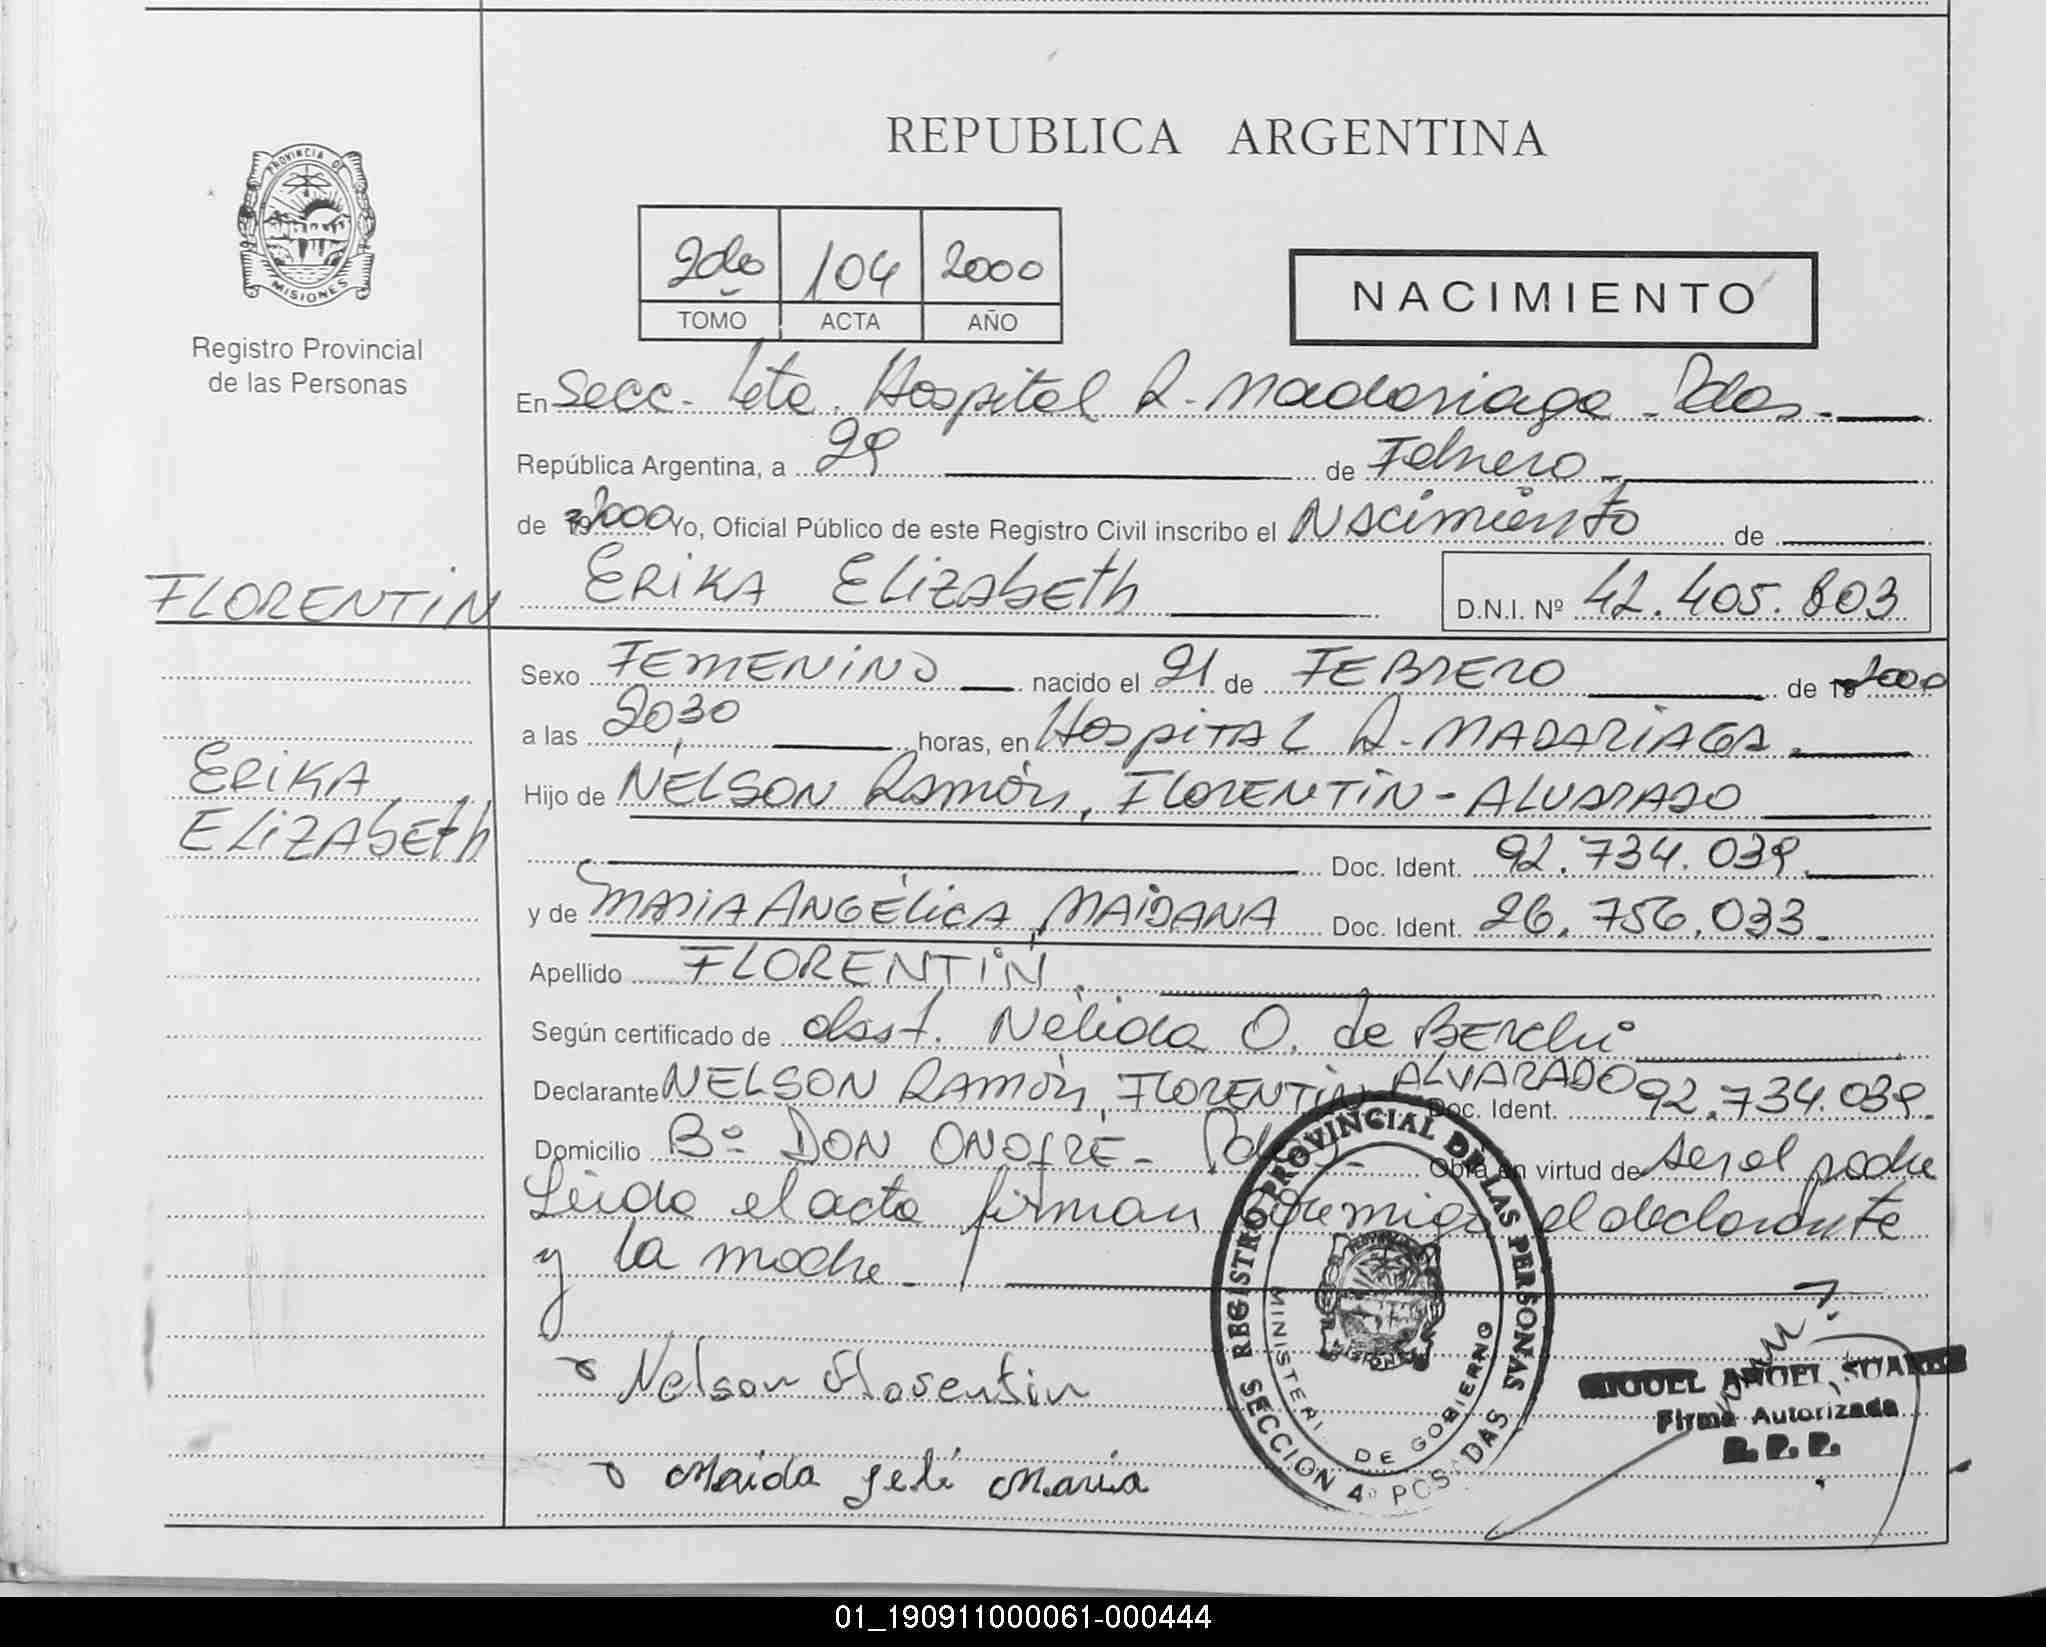 REPUBLICA ARGENTINA
PROVINCIA DE
MISIONES
Registro Provincial
de las Personas
2do 104 2000
TOMO ACTA AÑO
NACIMIENTO
En Secc. 4ta. Hospital R. Madariaga - Pdas.
República Argentina, a 29 de Febrero
de 2000 Yo, Oficial Público de este Registro Civil inscribo el Nacimiento de
FLORENTIN
ERIKA ELIZABETH D.N.I. Nº 42.405.803
Sexo FEMENINO nacido el 21 de FEBRERO de 2000
a las 20,30 horas, en HOSPITAL R. MADARIAGA.
ERIKA
ELIZABETH
Hijo de NELSON Ramón, FLORENTIN - ALVARADO
Doc. Ident. 92.734.039.
y de MARIA ANGÉLICA, MAIDANA Doc. Ident. 26.756.033.
Apellido FLORENTIN.
Según certificado de obst. Nélida O. de
Declarante NELSON Ramón, FLORENTIN ALVARADO Doc. Ident. 92.734.039.
Domicilio Bº DON ONOFRE - Pdas. Obra en virtud de ser el padre
Leida el acta firman conmigo el declarante
y la madre.
Nelson Florentin
Maida María
REGISTRO PROVINCIAL DE LAS PERSONAS
MINISTERI DE GOBIERNO
SECCION 4º POSADAS
MIGUEL ANGEL SUAREZ
Firma Autorizada
R. P. P.
01_190911000061-000444